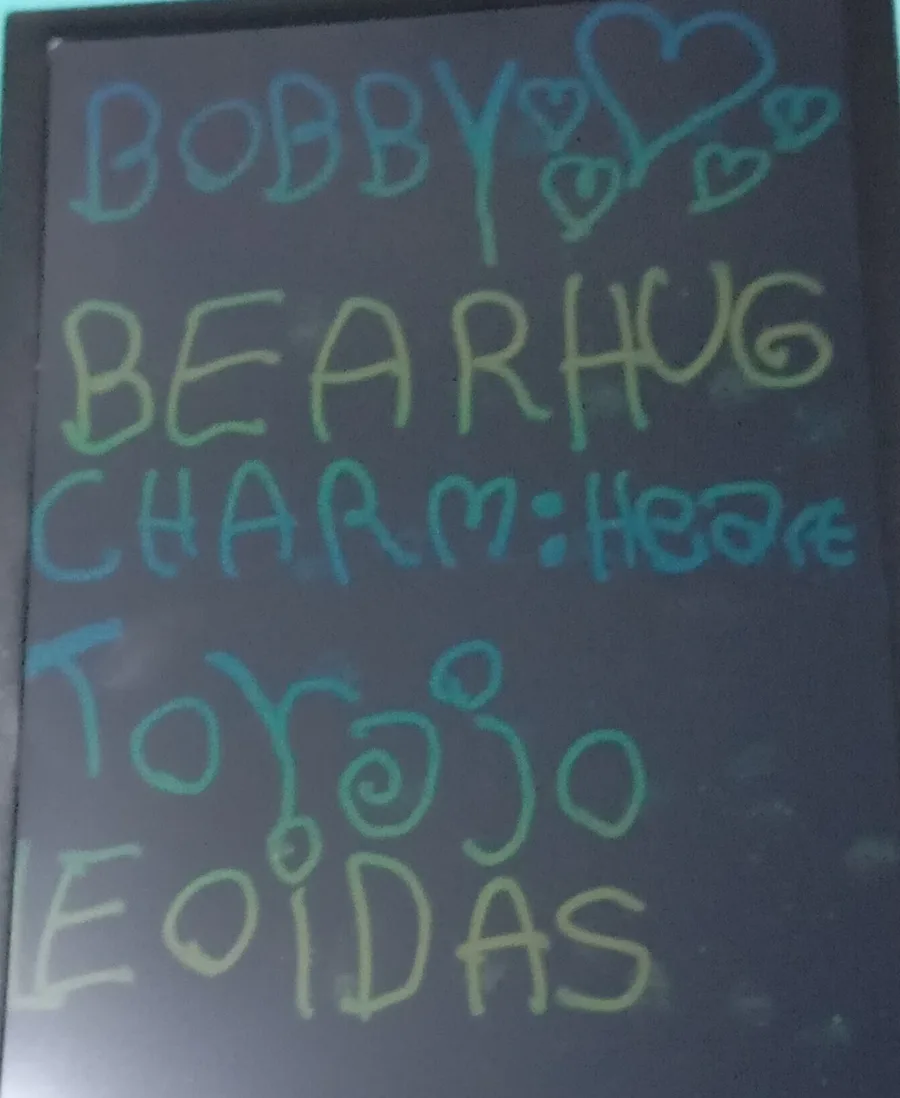 BOBBY
BEARHUG
CHARM:Heart
Torajo
LEOIDAS